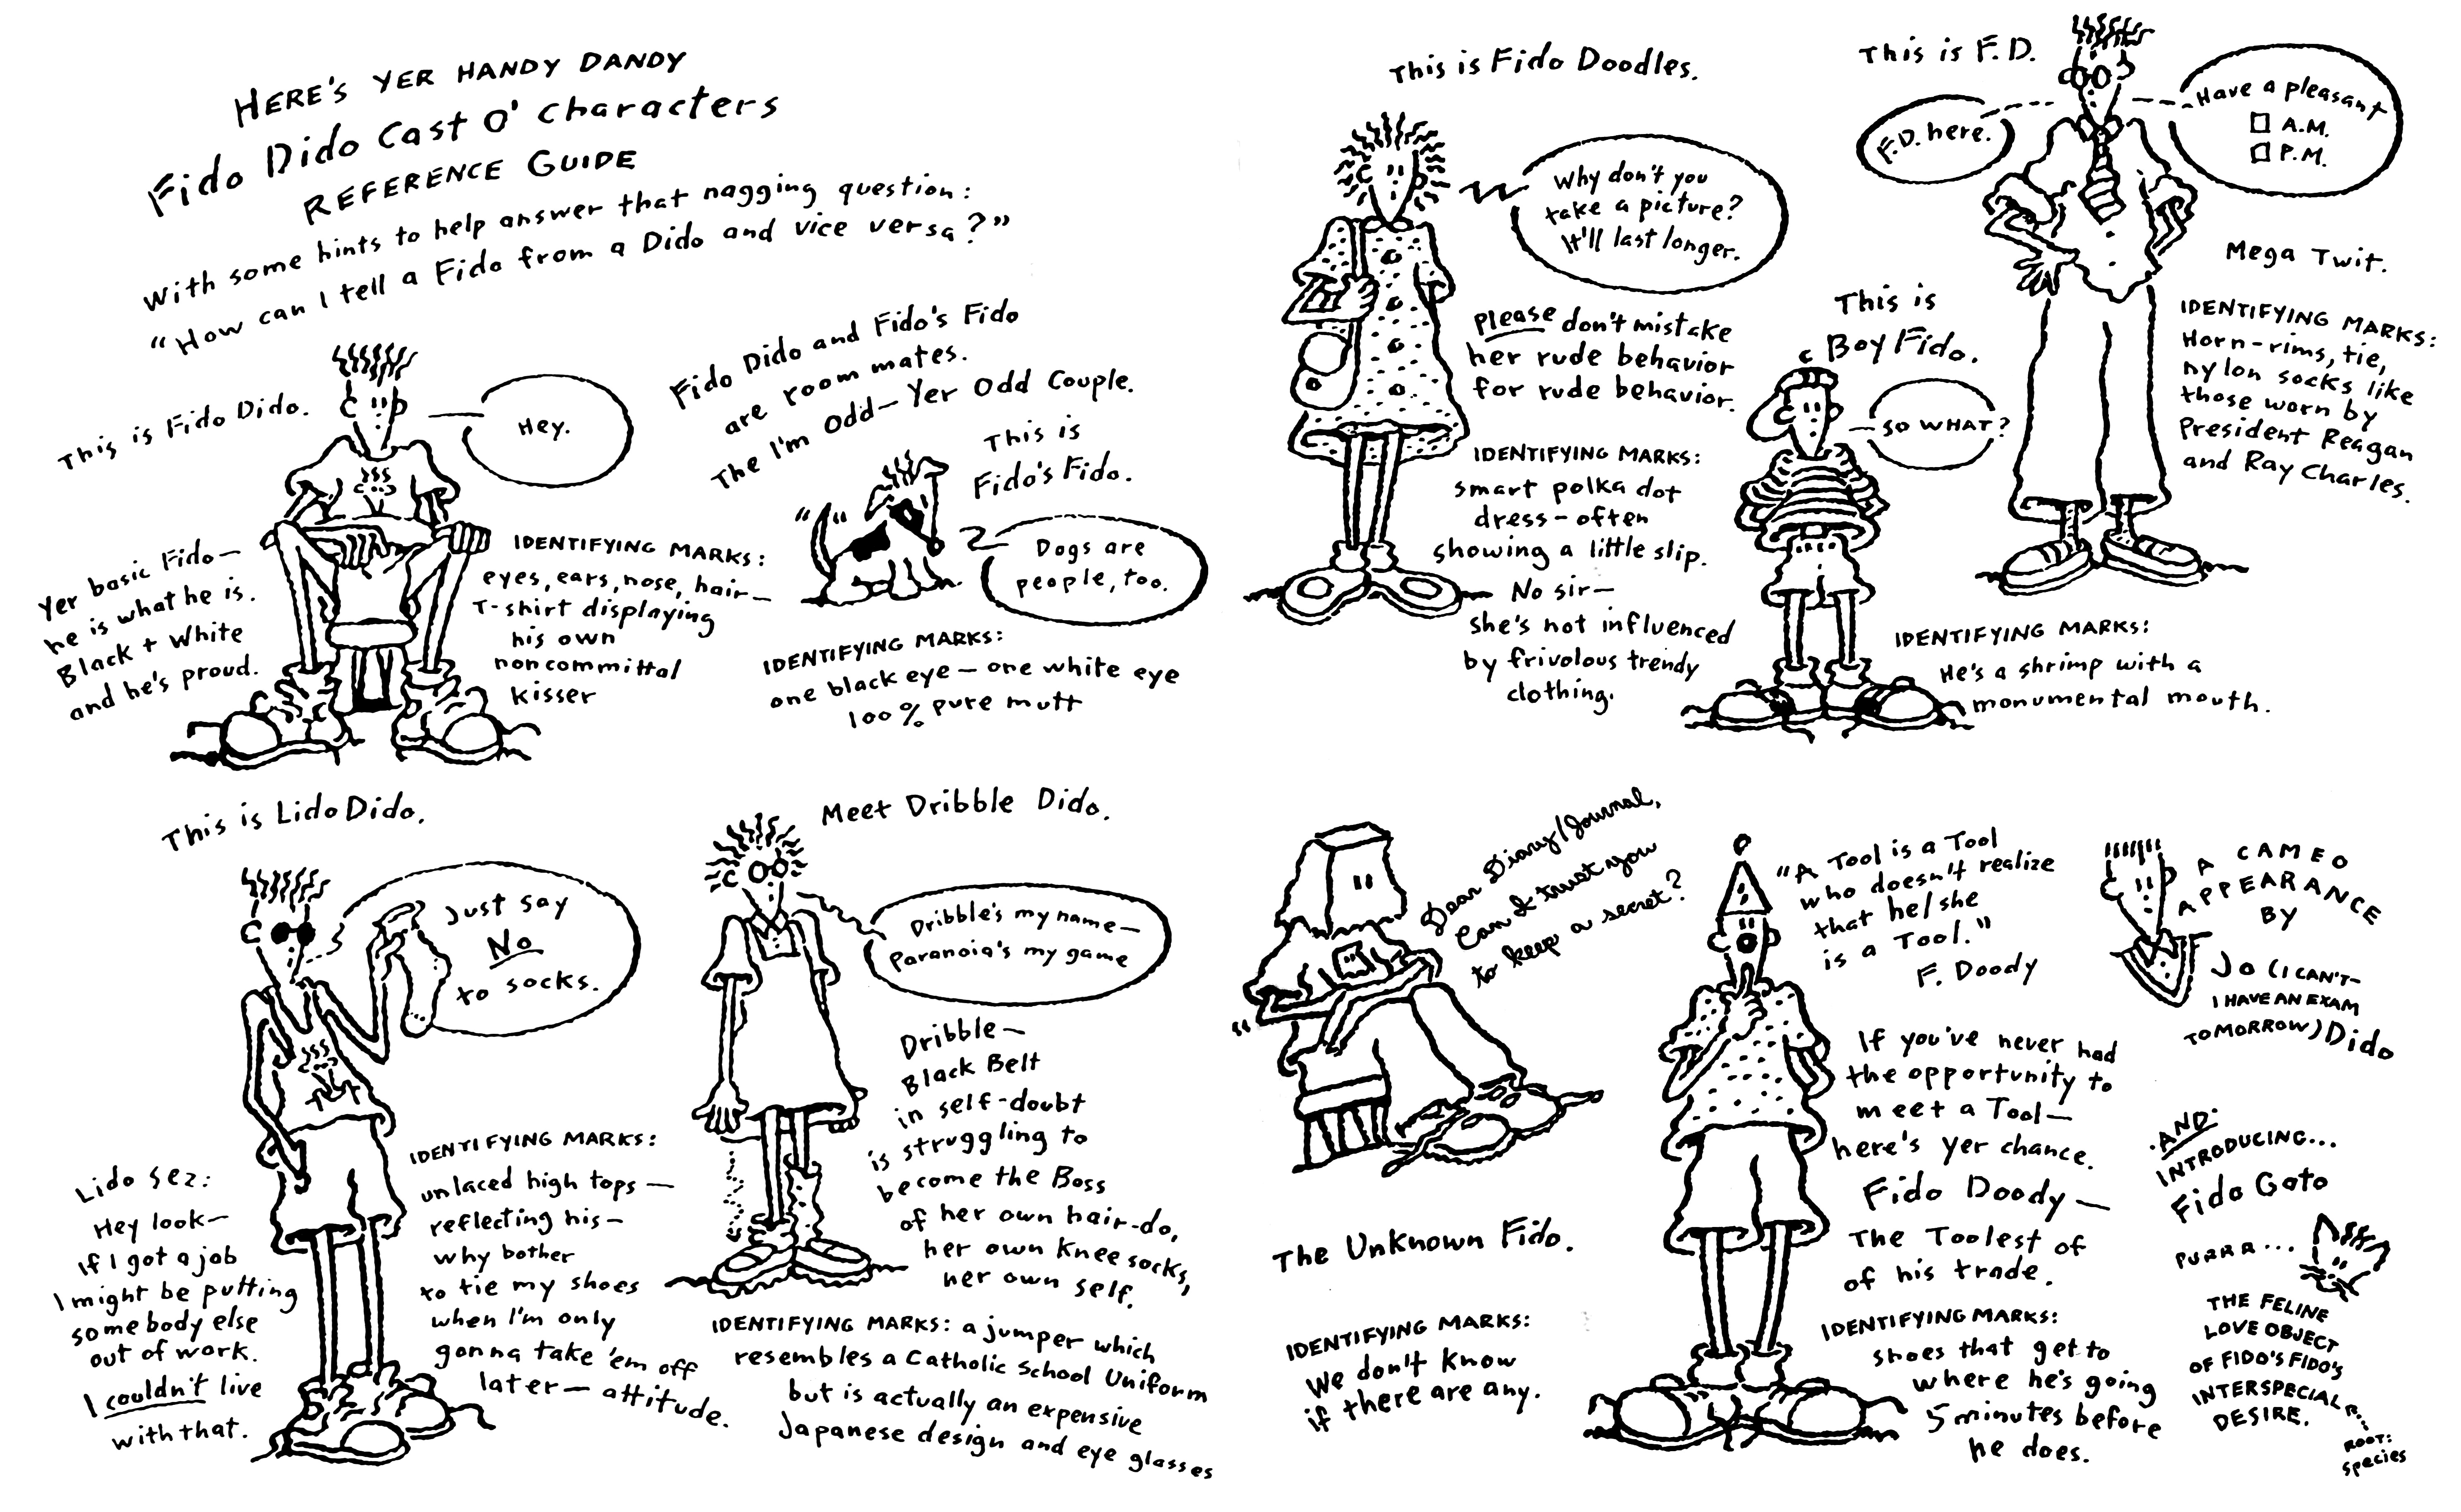 HERE'S YER HANDY DANDY
Fido Dido Cast O' Characters
REFERENCE GUIDE
With some hints to help answer that nagging question:
"How can I tell a Fido from a Dido and vice versa?"
This is Fido Dido.
Hey.
Yer basic Fido—
he is what he is.
Black + White
and he's proud.
IDENTIFYING MARKS:
eyes, ears, nose, hair—
T-shirt displaying
his own
noncommittal
kisser
Fido Dido and Fido's Fido
are room mates.
The I'm Odd—Yer Odd Couple.
This is
Fido's Fido.
Dogs are
people, too.
IDENTIFYING MARKS:
one black eye—one white eye
100% pure mutt
This is Fido Doodles.
Why don't you
take a picture?
It'll last longer.
Please don't mistake
her rude behavior
for rude behavior.
IDENTIFYING MARKS:
smart polka dot
dress—often
showing a little slip.
No sir—
she's not influenced
by frivolous trendy
clothing.
This is F.D.
F.D. here.
Have a pleasant
A.M.
P.M.
Mega Twit.
IDENTIFYING MARKS:
Horn-rims, tie,
nylon socks like
those worn by
President Reagan
and Ray Charles.
This is
Boy Fido.
SO WHAT?
IDENTIFYING MARKS:
He's a shrimp with a
monumental mouth.
This is Lido Dido.
Just say
No
to socks.
Lido sez:
Hey look—
if I got a job
I might be putting
somebody else
out of work.
I couldn't live
with that.
IDENTIFYING MARKS:
unlaced high tops—
reflecting his—
why bother
to tie my shoes
when I'm only
gonna take 'em off
later—attitude.
Meet Dribble Dido.
Dribble's my name—
Paranoia's my game
Dribble—
Black Belt
in self-doubt
is struggling to
become the Boss
of her own hair-do,
her own knee socks,
her own self.
IDENTIFYING MARKS: a jumper which
resembles a Catholic School Uniform
but is actually an expensive
Japanese design and eye glasses
Dear Diary/Journal,
Can I trust you
to keep a secret?
The Unknown Fido.
IDENTIFYING MARKS:
We don't know
if there are any.
"A Tool is a Tool
who doesn't realize
that he/she
is a Tool."
F. Doody
If you've never had
the opportunity to
meet a Tool—
here's yer chance.
Fido Doody—
The Toolest of
of his trade.
IDENTIFYING MARKS:
shoes that get to
where he's going
5 minutes before
he does.
A CAMEO
APPEARANCE
BY
Jo (I CAN'T—
I HAVE AN EXAM
TOMORROW) Dido
·AND·
INTRODUCING...
Fido Gato
PURRR...
THE FELINE
LOVE OBJECT
OF FIDO'S FIDO'S
INTERSPECIAL
DESIRE.
ROOT:
species